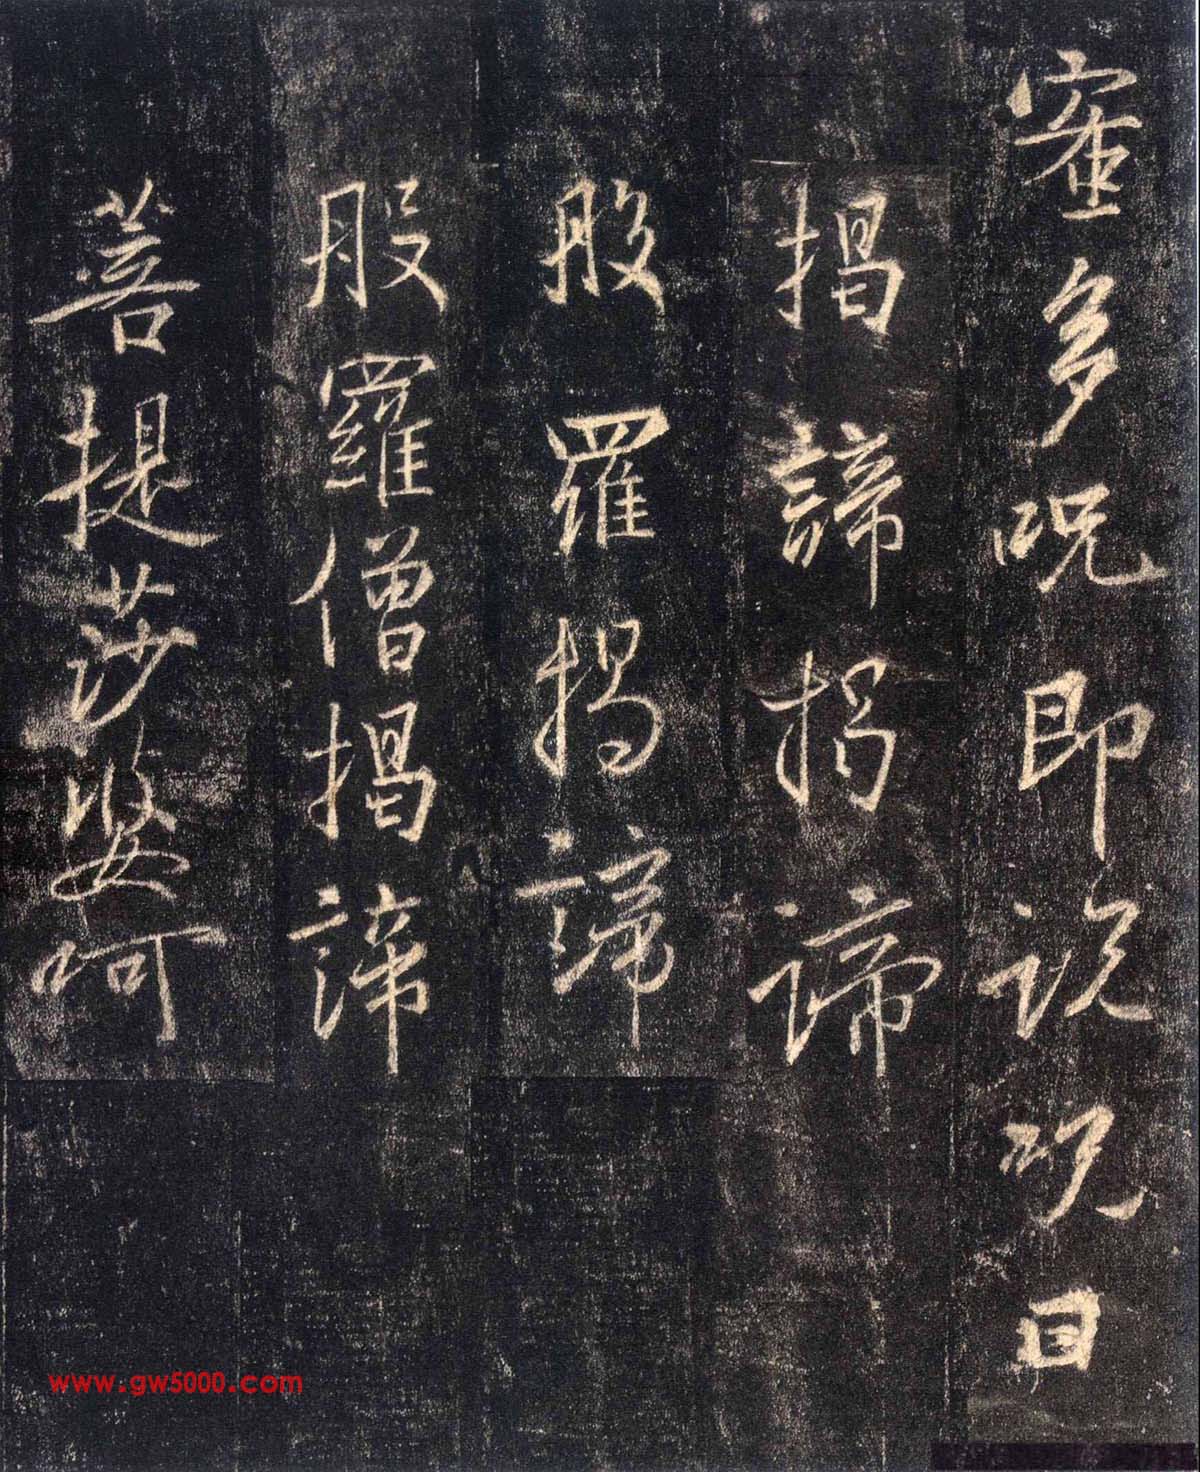 蜜多呪即說呪曰
揭諦揭諦
般羅揭諦
般羅僧揭諦
菩提莎婆呵
www.gw5000.com